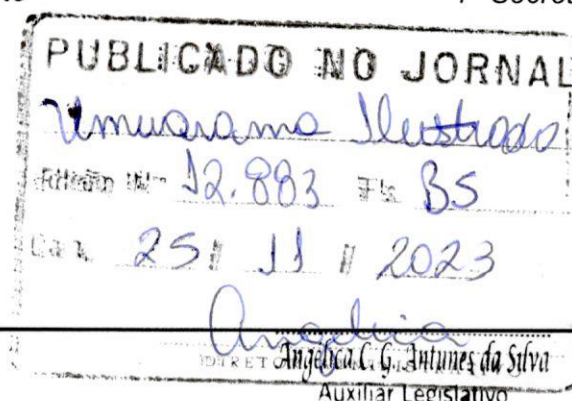 PUBLICADO NO JORNAL
Umuarama Ilustrado
Edição Nº 12.883 Fls. B5
25 / 11 / 2023
Angélica
Angélica C. G. Antunes da Silva
Auxiliar Legislativo